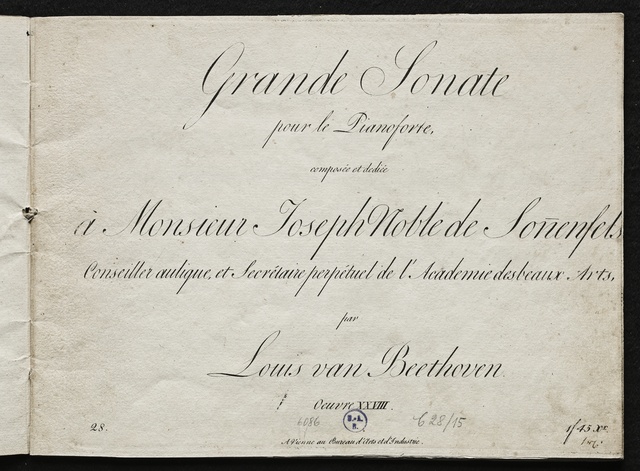 Grande Sonate
pour le Pianoforte,
composée et dediée
à Monsieur Joseph Noble de Son̄enfels
Conseiller aulique, et Secrétaire perpétuel de l'Académie des beaux Arts,
par
Louis van Beethoven
Oeuvre XXVIII.
6086
C 28/15
28.
A Vienne au Bureau d'Arts et d'Industrie.
1f 45 Xr